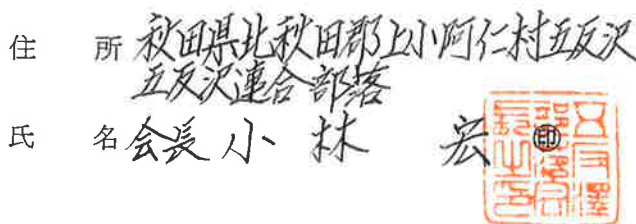 住 所 秋田県北秋田郡上小阿仁村五反沢
五反沢連合部落
氏 名 会長 小 林 宏 ㊞